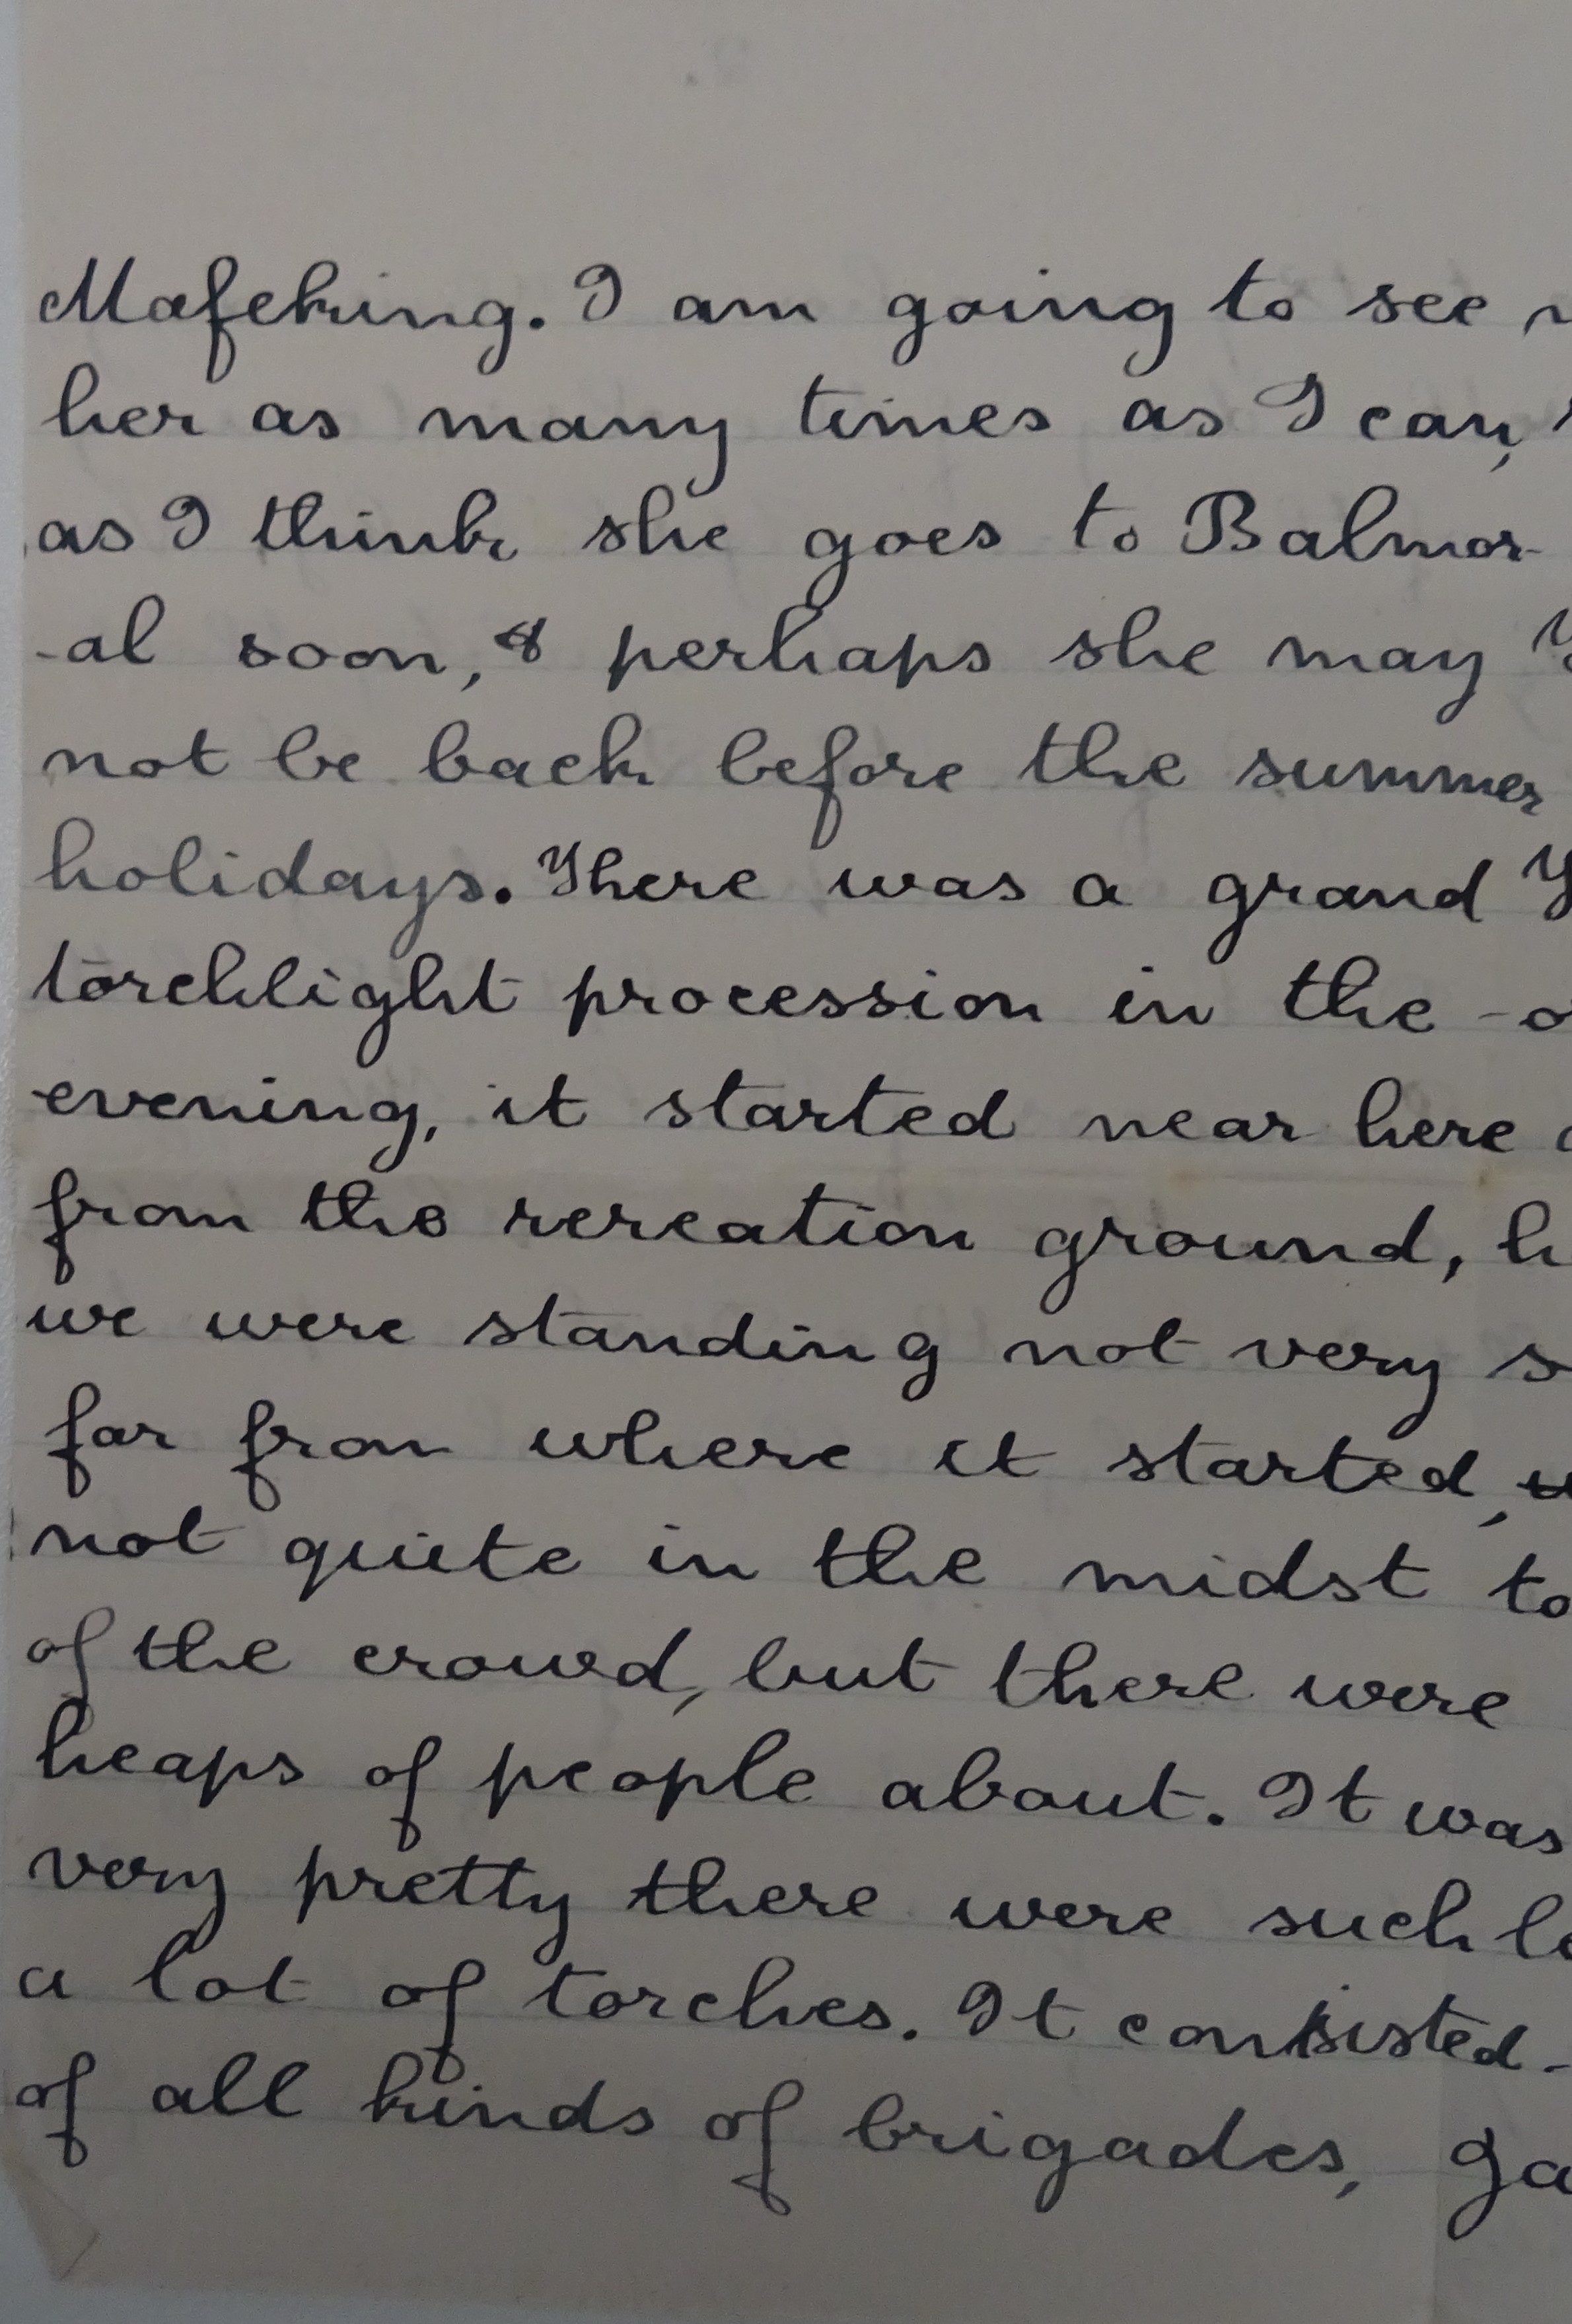 Mafeking. I am going to see
her as many times as I can,
as I think she goes to Balmor-
-al soon, & perhaps she may
not be back before the summer
holidays. There was a grand
torchlight procession in the
evening, it started near here
from the recreation ground,
we were standing not very
far from where it started,
not quite in the midst to
of the crowd, but there were
heaps of people about. It was
very pretty there were such
a lot of torches. It consisted
of all kinds of brigades,